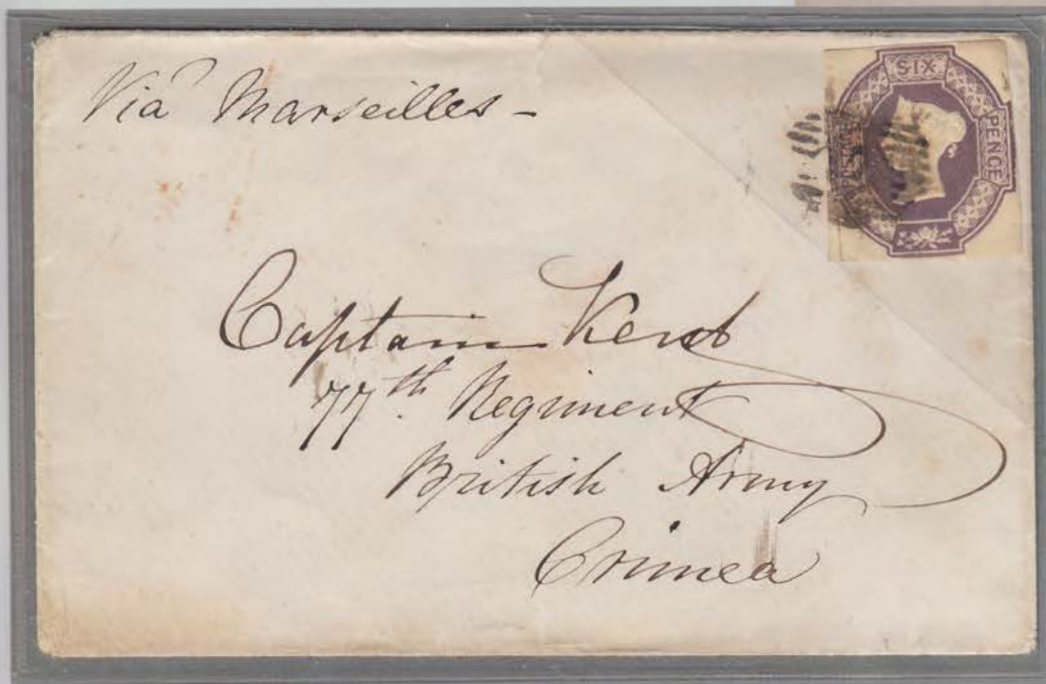 Via Marseilles -
SIX
PENCE
POSTAGE
Captain Kent
77th Regiment
British Army
Crimea